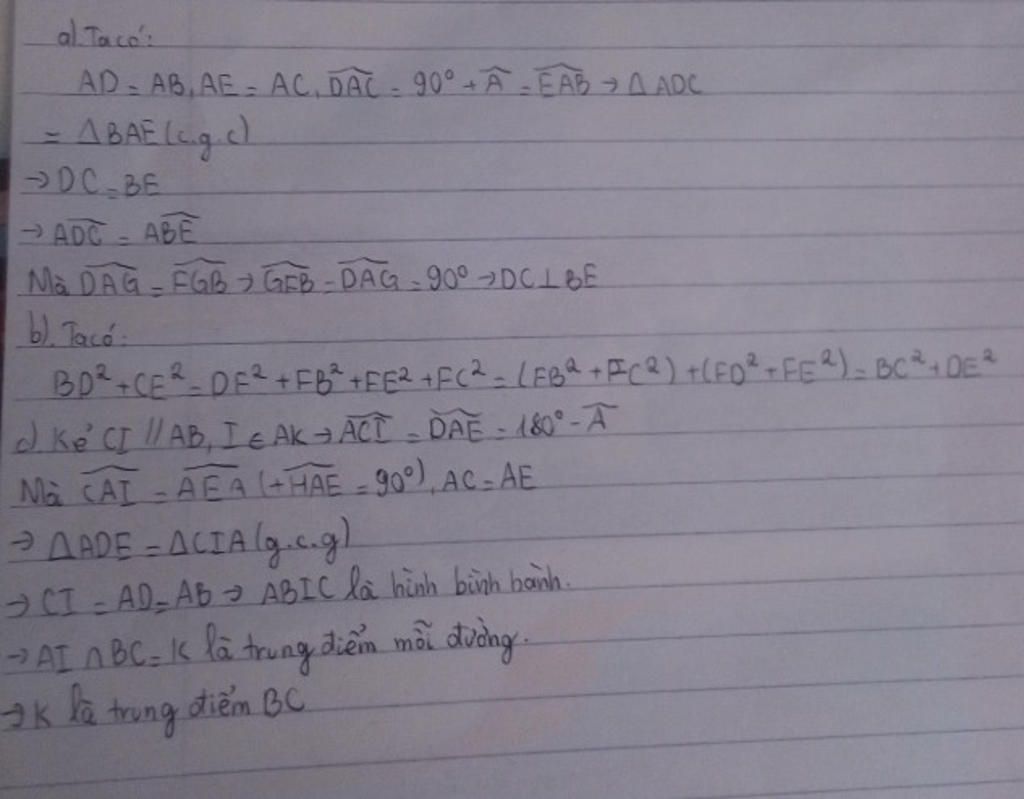 a). Ta có:
AD = AB, AE = AC, \widehat{DAC} = 90° + \widehat{A} = \widehat{EAB} → △ADC
= △BAE (c.g.c)
→ DC = BE
→ \widehat{ADC} = \widehat{ABE}
Mà \widehat{DAG} = \widehat{FGB} → \widehat{GFB} = \widehat{DAG} = 90° → DC ⊥ BE
b). Ta có:
BD² + CE² = DF² + FB² + FE² + FC² = (FB² + FC²) + (FD² + FE²) = BC² + DE²
c). Kẻ CI // AB, I ∈ AK → \widehat{ACI} = \widehat{DAE} = 180° - \widehat{A}
Mà \widehat{CAI} = \widehat{AEA} (+\widehat{HAE} = 90°), AC = AE
→ △ADE = △CIA (g.c.g)
→ CI = AD = AB → ABIC là hình bình hành.
→ AI ∩ BC = K là trung điểm mỗi đường.
→ K là trung điểm BC